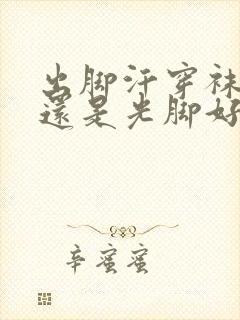 出脚汗穿袜
還是光脚好
辛蜜蜜